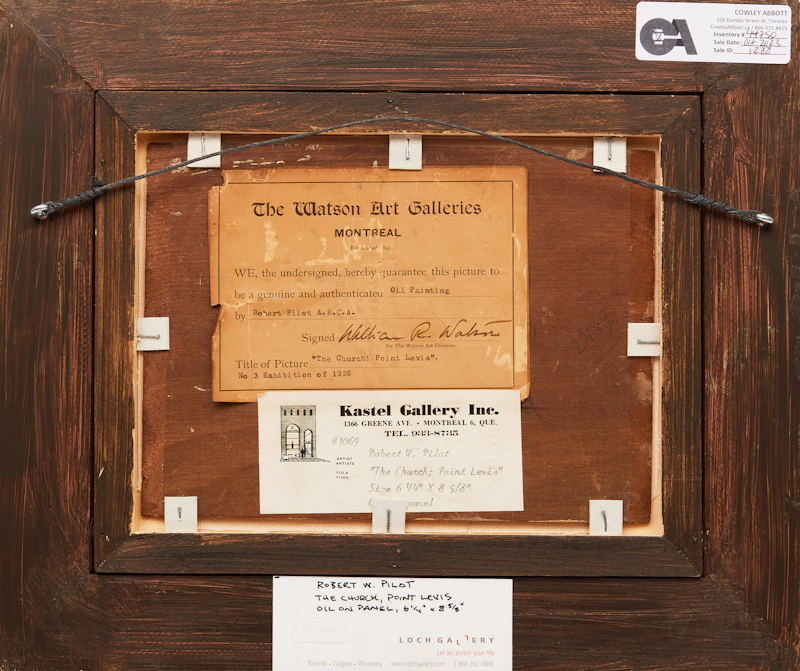 COWLEY ABBOTT
326 Dundas Street W. Toronto
CowleyAbbott.ca / 866-931-8415
Inventory # 44750
Sale Date: Oct 2023
Sale ID:
CA
The Watson Art Galleries
MONTREAL
WE, the undersigned, hereby guarantee this picture to
be a genuine and authenticated Oil Painting
by Robert Pilot A.R.C.A.
Signed William R. Watson
for The Watson Art Galleries
Title of Picture "The Church: Point Levis".
No 3 Exhibition of 1926
Kastel Gallery Inc.
1366 GREENE AVE. - MONTREAL 6, QUE.
TEL. 933-8735
#3069
ARTIST
ARTISTE
Robert W. Pilot
TITLE
TITRE
"The Church; Point Levis"
Size 6 1/4" X 8 5/8"
panel
ROBERT W. PILOT
THE CHURCH, POINT LEVIS
OIL ON PANEL, 6 1/4" x 8 5/8"
LOCH GALLERY
Let art enrich your life
Toronto • Calgary • Winnipeg www.lochgallery.com